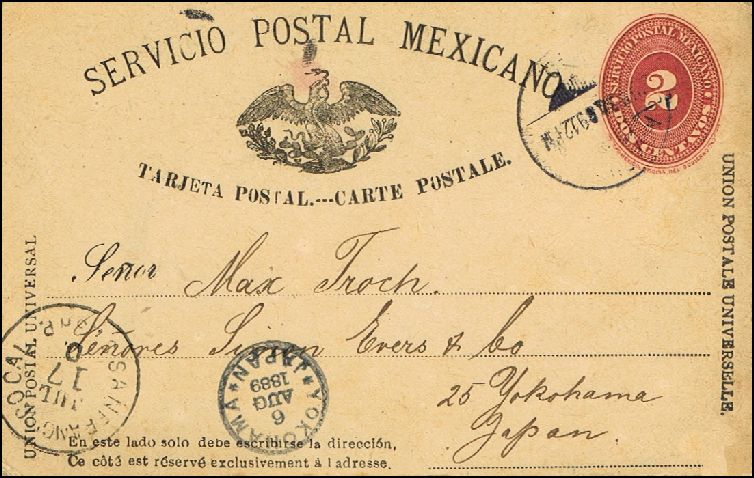 SERVICIO POSTAL MEXICANO
SERVICIO POSTAL MEXICANO
2
DOS CENTAVOS
TARJETA POSTAL.---CARTE POSTALE.
UNION POSTAL UNIVERSAL
UNION POSTALE UNIVERSELLE.
Señor Max Troch.
Señores Simon Evers & Co
25 Yokohama
Japan.
SAN FRANCISCO CAL
17
JUL
YOKOHAMA
JAPAN
6
AUG
1889
En este lado solo debe escribirse la dirección,
Ce côté est réservé exclusivement à l adresse.